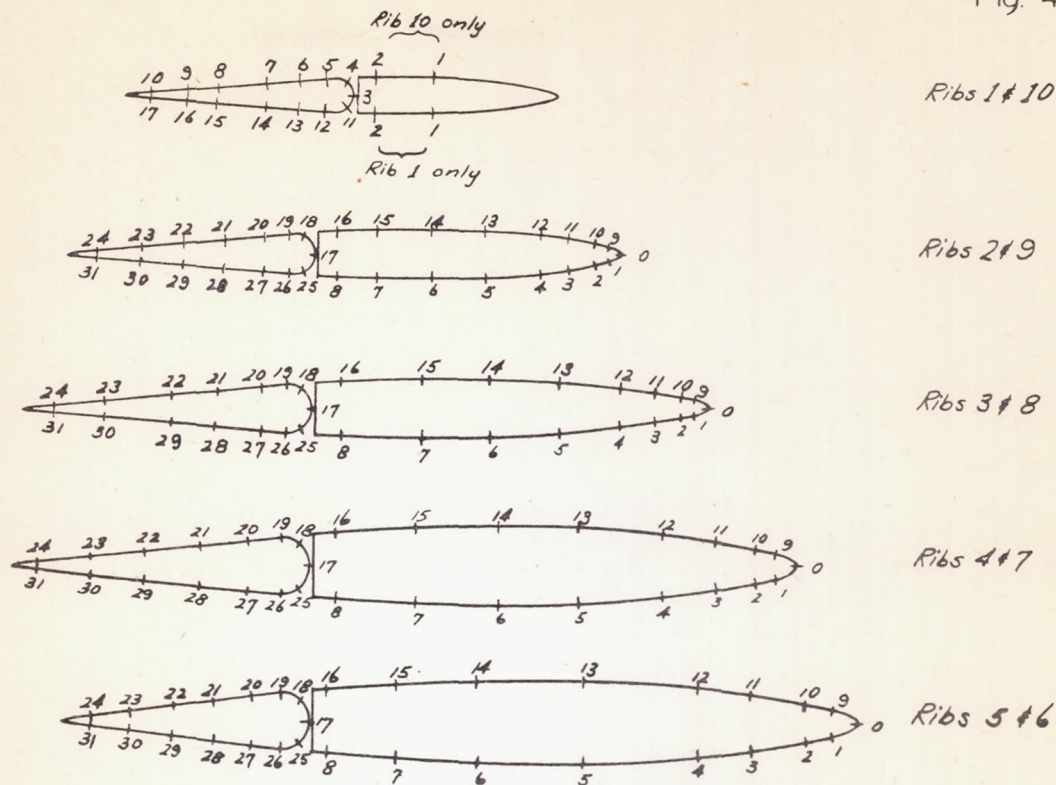 Fig. 4
Rib 10 only
2 1
10 9 8 7 6 5 4
3
17 16 15 14 13 12 11
2 1
Rib 1 only
Ribs 1 & 10
24 23 22 21 20 19 18 16 15 14 13 12 11 10 9
17 0
31 30 29 28 27 26 25 8 7 6 5 4 3 2 1
Ribs 2 & 9
24 23 22 21 20 19 18 16 15 14 13 12 11 10 9
17 0
31 30 29 28 27 26 25 8 7 6 5 4 3 2 1
Ribs 3 & 8
24 23 22 21 20 19 18 16 15 14 13 12 11 10 9
17 0
31 30 29 28 27 26 25 8 7 6 5 4 3 2 1
Ribs 4 & 7
24 23 22 21 20 19 18 16 15 14 13 12 11 10 9
17 0
31 30 29 28 27 26 25 8 7 6 5 4 3 2 1
Ribs 5 & 6